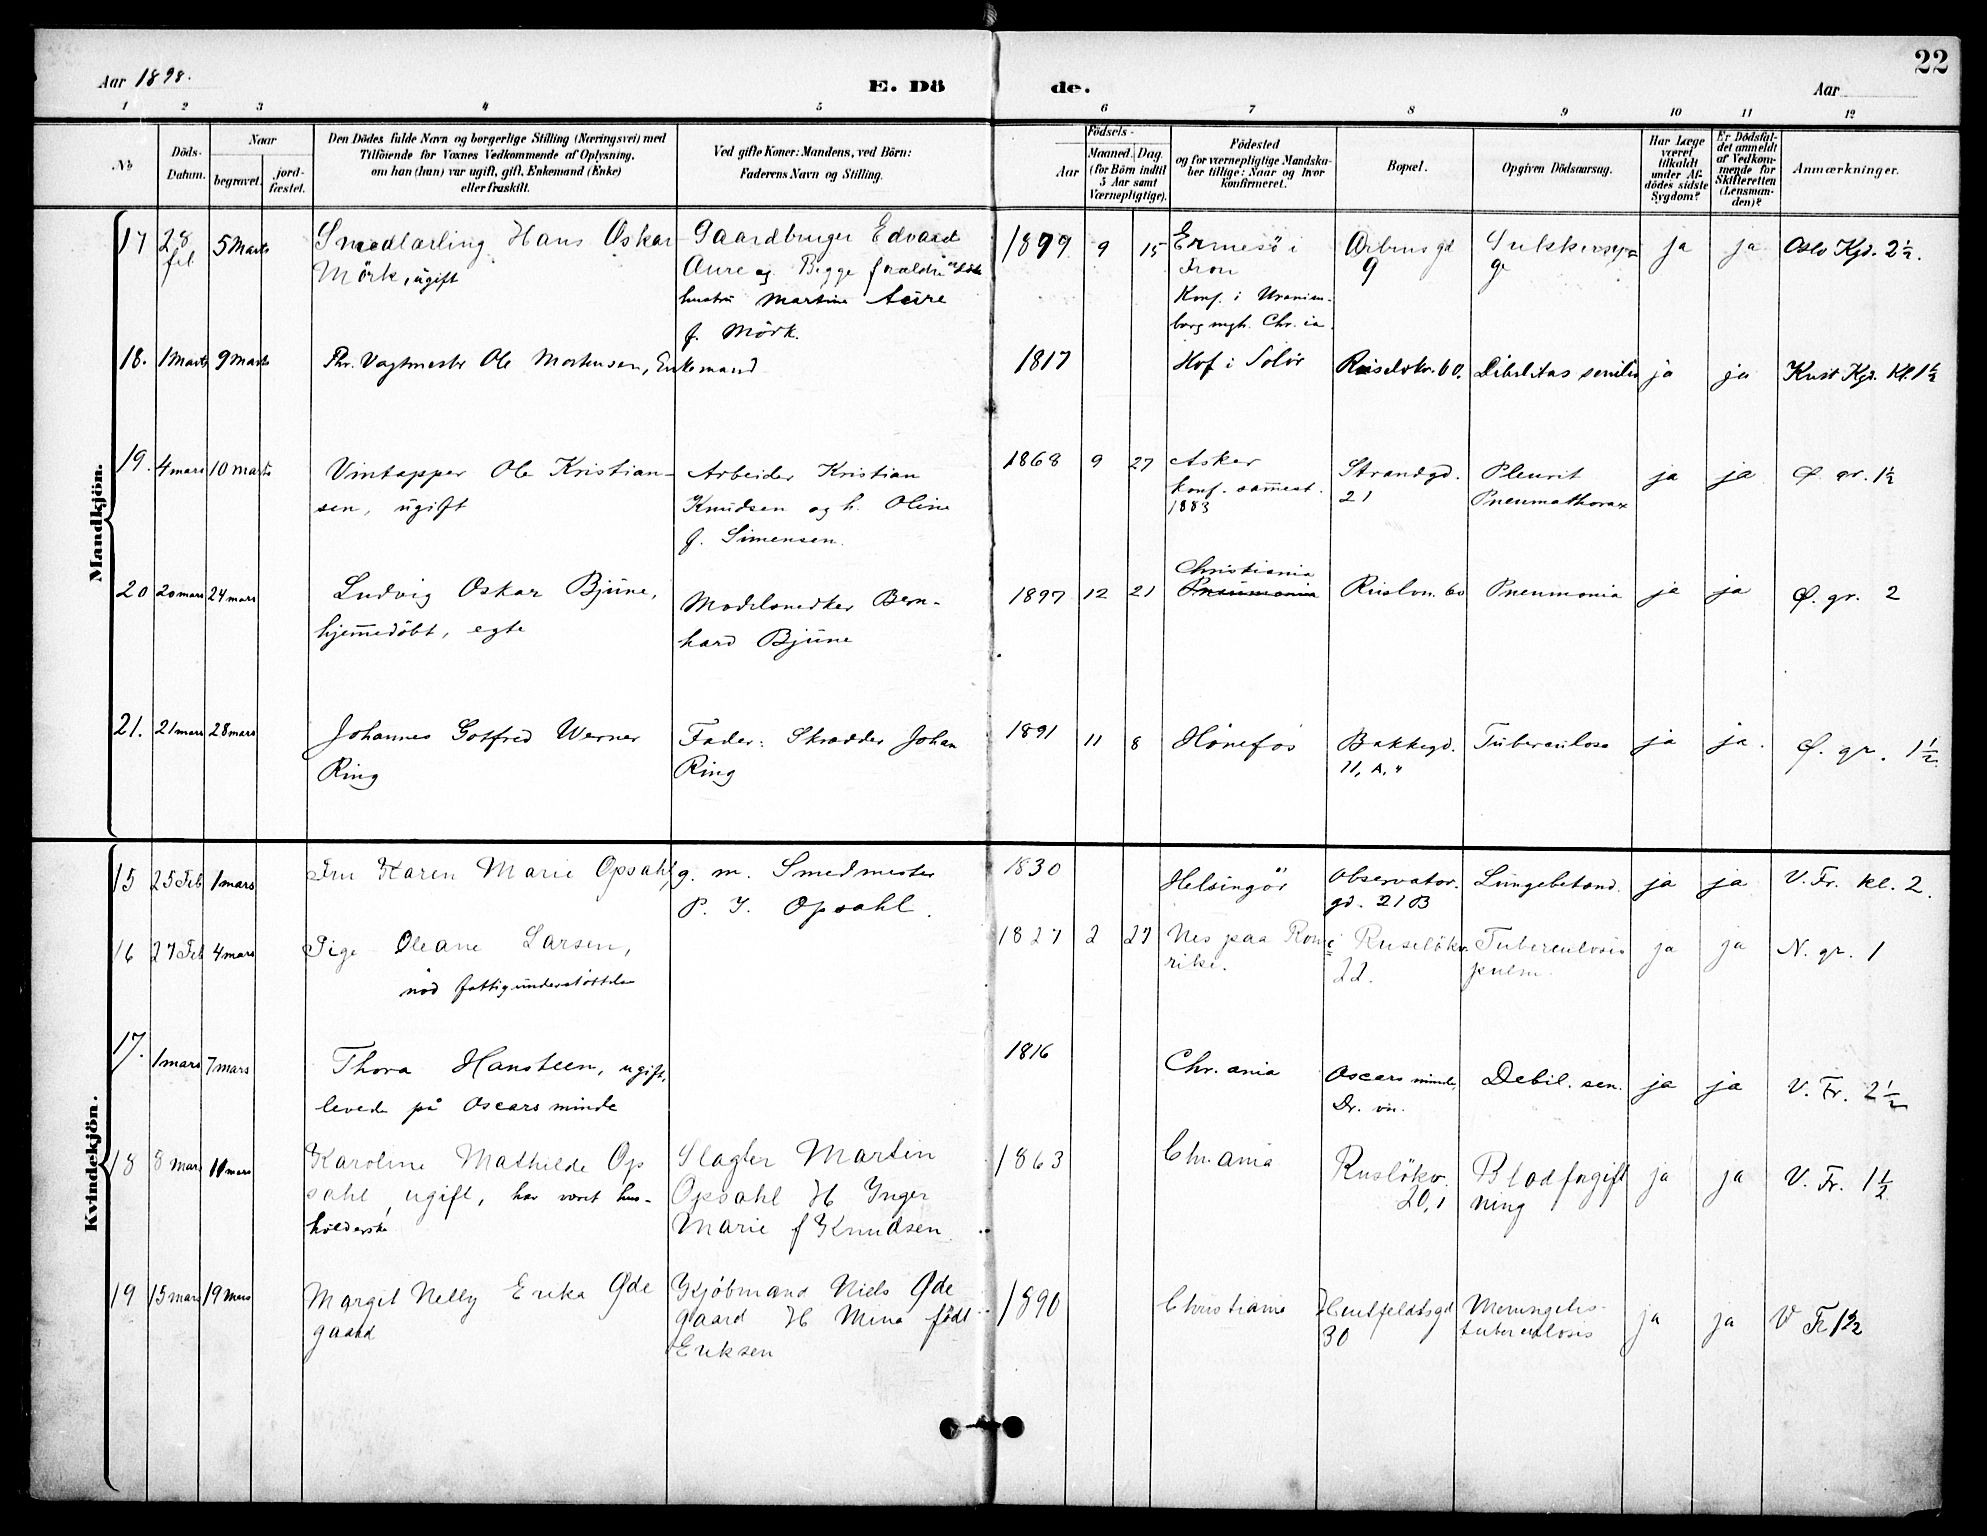 Aar 1898.
E. Dö
de.
Aar
22
1 2 3 4 5 6 7 8 9 10 11 12
No
Döds-
Datum.
Naar
begravet.
jord-
fæstet.
Den Dödes fulde Navn og borgerlige Stilling (Næringsvei) med
Tilföiende for Voxnes Vedkommende af Oplysning,
om han (hun) var ugift, gift, Enkemand (Enke)
eller fraskilt.
Ved gifte Koner: Mandens, ved Börn:
Faderens Navn og Stilling.
Födsels-
Aar
Maaned. Dag.
(for Börn indtil
5 Aar samt
Værnepligtige).
Födested
og for værnepligtige Mandska-
ber tillige: Naar og hvor
konfirmeret.
Bopæl.
Opgiven Dödsaarsag.
Har Læge
været
tilkaldt
under Af-
dödes sidste
Sygdom?
Er Dödsfal-
det anmeldt
af Vedkom-
mende for
Skifteretten
(Lensman-
den)?
Anmærkninger.
Mandkjön.
17 28 feb 5 Marts
Smedlærling Hans Oskar
Mörk, ugift
Gaardbruger Edvard
Aure og Begge forældre
hustru Martine Aure
f. Mörk.
9 15
i
Fron
Konf. i Uranien-
borg mgh. Chr.ia.
9
ja ja Oslo Kgd. 2½.
18. 1 Marts 9 Marts
Vagtmester Ole Mortensen, Enkemand
1817 Hof i Solör
60. Debilitas senilis ja ja Krist Kgd. Kl. 1½
19. 4 mars 10 marts
Vintapper Ole Kristian-
sen, ugift
Arbeider Kristian
Knudsen og h. Oline
f. Simensen.
1868 9 27 Asker
konf. sammest.
1883
Strandgd.
21
Pleurit
Pneumathorax
ja ja Ø. gr. 1½
20 20 mars 24 mars
Ludvig Oskar Bjune,
hjemmedöbt, egte
Modelsnedker Bern-
hard Bjune
1897 12 21
Christiania
Pneumonia
60 Pneumonia ja ja Ø. gr. 2
21. 21 mars 28 mars
Johannes Gotfred Werner
Ring
Fader: Skrædder Johan
Ring
1891 11 8 Hönefos
Bakkegd.
11, A,
Tuberculose ja ja. Ø. gr. 1½.
Kvindekjön.
15 25 Feb 1 mars
Fru Karen Marie Opsahl,
g. m. Smedmester
P. J. Opsahl.
1830 Helsingör
Observator.
gd. 21 B
Lungebetænd. ja ja V. Fr. kl. 2.
16 27 Feb 4 mars
Pige Oleane Larsen,
nöd fattigunderstöttelse
1827 2 27 Nes paa Rome
rike.
Ruselökv.
22.
Tuberculosis
pulm.
ja ja N. gr. 1
17. 1 mars 7 mars
Thora Hansteen, ugift,
levede på Oscars minde
1816 Chr.ania
Oscars minde,
Dr. vn.
Debil. sen. ja ja V. Fr. 2½
18 8 mars 10 mars
Karoline Mathilde Op
sahl, ugift, har været hus-
holderske
Slagter Martin
Opsahl H Inger
Marie f Knudsen
1863 Chr.ania
Ruslökv.
20, 1
Blodforgift
ning
ja ja V. Fr. 1½
19 15 mars 19 mars
Margit Nelly Erika Øde
gaard
Kjöbmand Niels Øde
gaard H Mina födt
Eriksen
1890 Christiania
30
Meningitis
tuberculosis
ja ja V Fr 1½